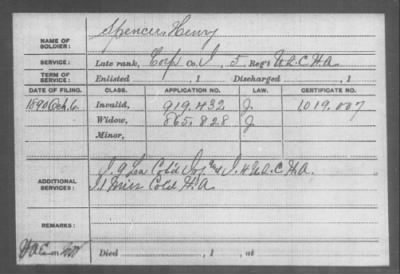 NAME OF SOLDIER: Spencer, Henry
SERVICE: Late rank, Corp Co. I, 5 Reg't U.S.C.H.A.
TERM OF SERVICE: Enlisted , 1 Discharged , 1
DATE OF FILING. CLASS. APPLICATION NO. LAW. CERTIFICATE NO.
1890 Oct. 6 Invalid, 919.432 J. 1019.007
Widow, 865.828 J.
Minor,
ADDITIONAL SERVICES: I. 9 Lou Col'd Inf. I. 4 U.S.C.H.A.
I. 1 Miss Col'd H.A.
REMARKS:
Died , 1 , at